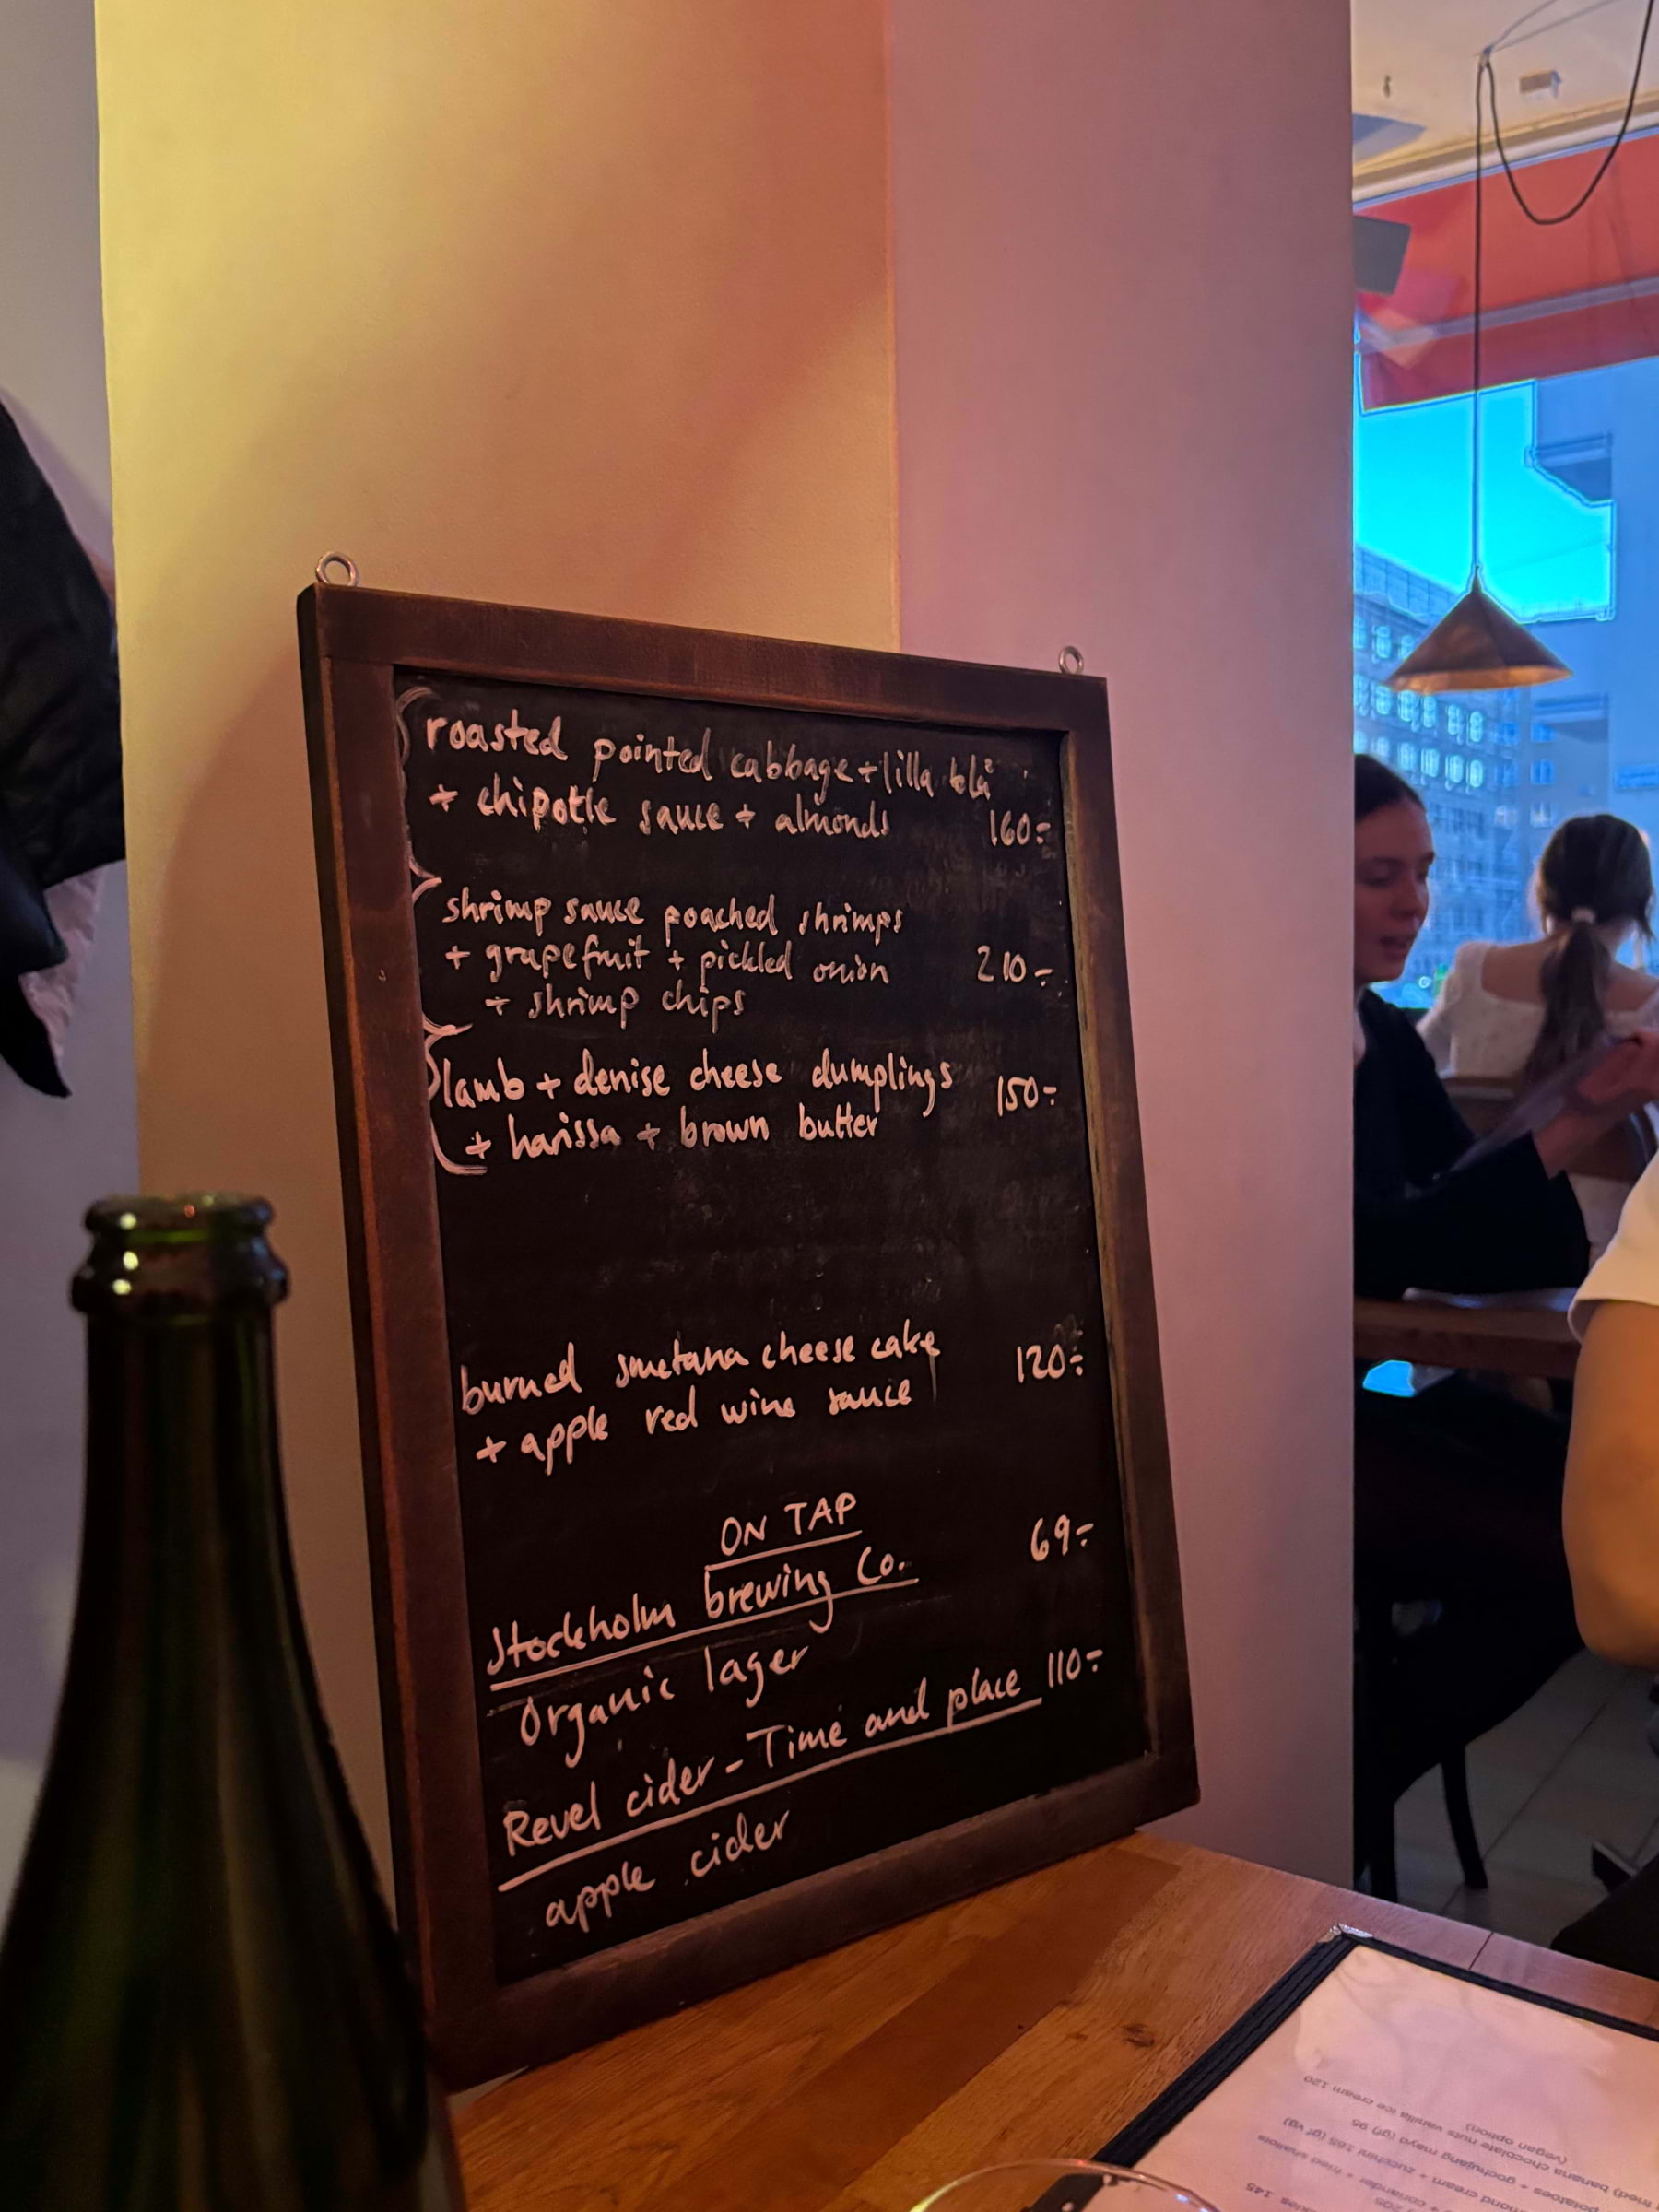 roasted pointed cabbage + lilla blå
+ chipotle sauce + almonds 160:-
shrimp sauce poached shrimps
+ grapefruit + pickled onion 210:-
+ shrimp chips
lamb + denise cheese dumplings 150:-
+ harissa + brown butter
burned smetana cheese cake 120:-
+ apple red wine sauce
ON TAP
Stockholm brewing Co. 69:-
Organic lager
Revel cider - Time and place 110:-
apple cider
145
+ coriander + fried shallots
+ zucchini 165 (gf vg)
potatoes + gochujang mayo (gf) 95
(vegan option)
fried banana chocolate nuts vanilla ice cream 120